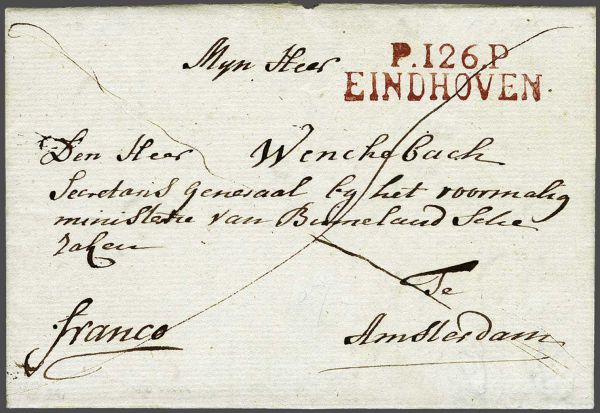 Myn Heer
P.126.P
EINDHOVEN
Den Heer Wenckebach
Secretaris generaal by het voormalig
ministerie van Binnelandsche
zaken
Te
franco
Amsterdam